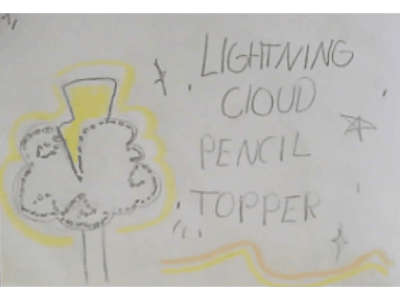 LIGHTNING
CLOUD
PENCIL
TOPPER